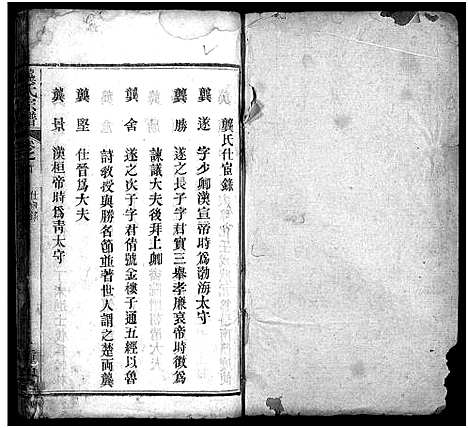 龔氏仕宦錄
龔遂 字少卿漢宣帝時爲渤海太守
龔勝 遂之長子字君實三舉孝廉哀帝時徵爲
諫議大夫後拜上卿
龔舍 遂之次子字君倩號金樓子通五經以魯
詩教授與勝名節並著世人謂之楚兩龔
龔堅 仕晉爲大夫
龔景 漢桓帝時爲青太守
龔氏宗譜